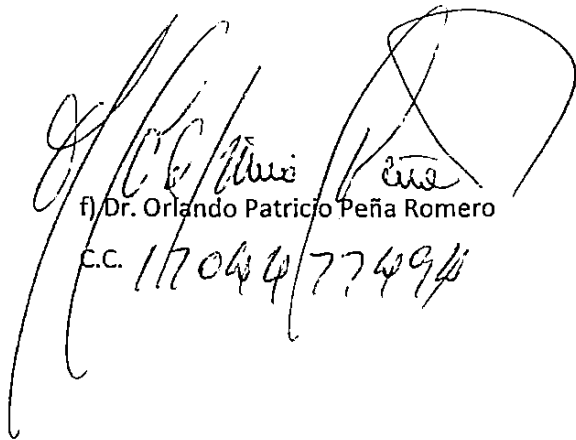 f) Dr. Orlando Patricio Peña Romero
C.C. 1704477494